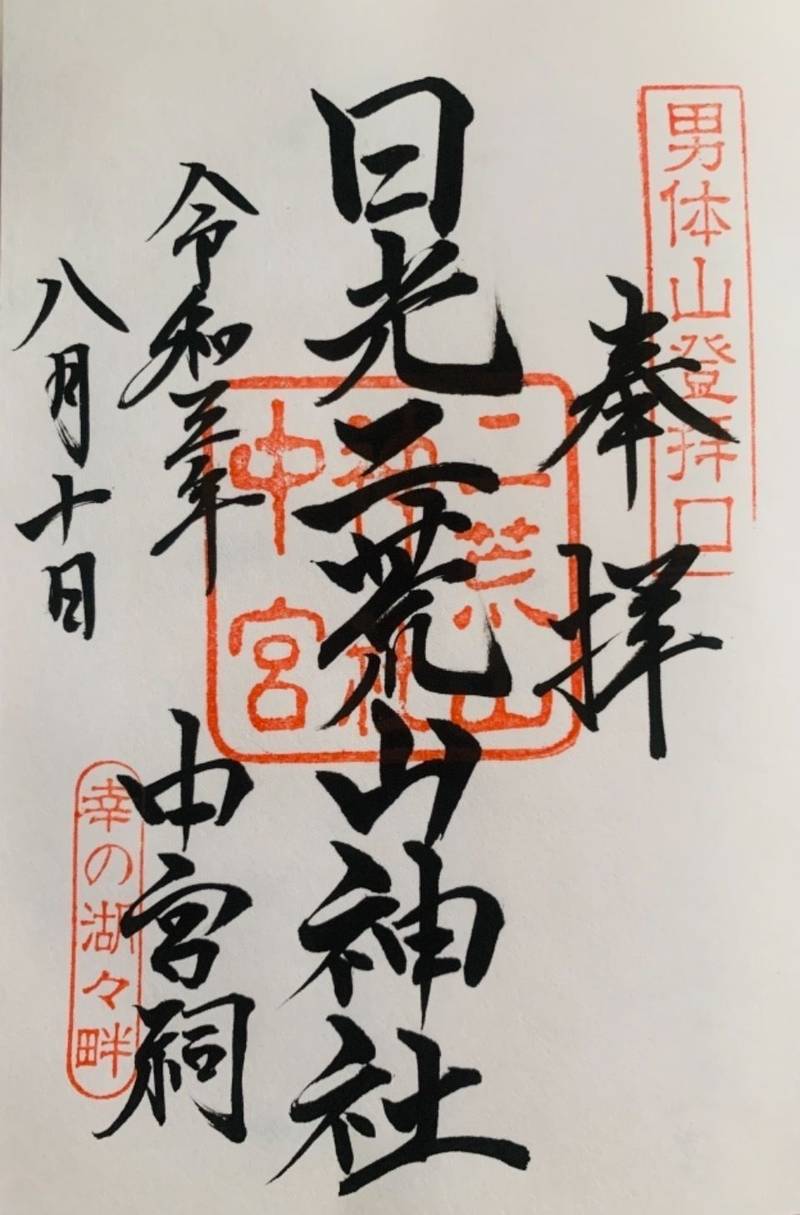 男体山登拝口
奉拝
日光二荒山神社
二荒山
神社
中宮
中宮祠
令和三年
八月十日
幸の湖々畔